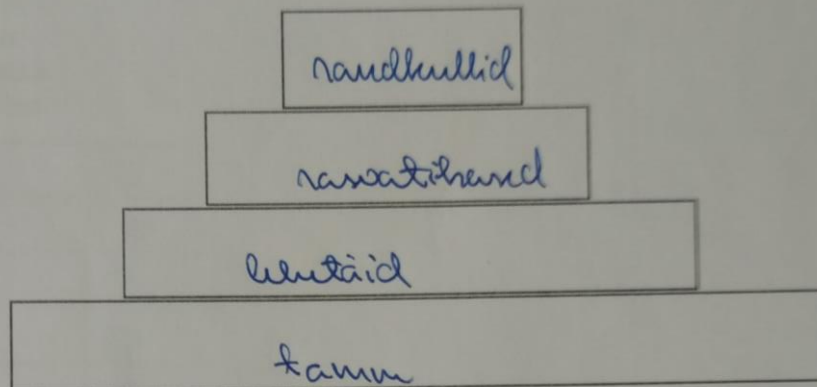 raudkullid
rasvatihased
lehetäid
tamm